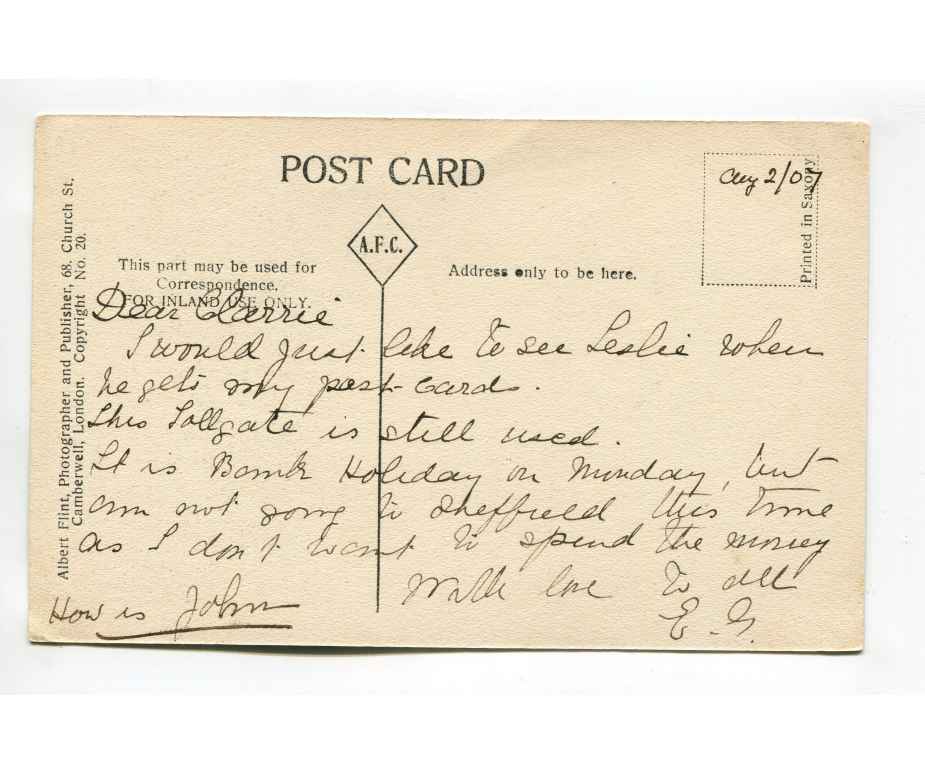 POST CARD
Aug 2/07
Printed in Saxony
A.F.C.
This part may be used for
Correspondence.
FOR INLAND USE ONLY.
Address only to be here.
Albert Flint, Photographer and Publisher, 68, Church St.
Camberwell, London. Copyright No. 20.
Dear Carrie
I would just like to see Leslie when
he gets my post-cards.
This Tollgate is still used.
It is Bank Holiday on Monday, but
am not going to Sheffield this time
as I don't want to spend the money
With love to all
E. G.
How is John